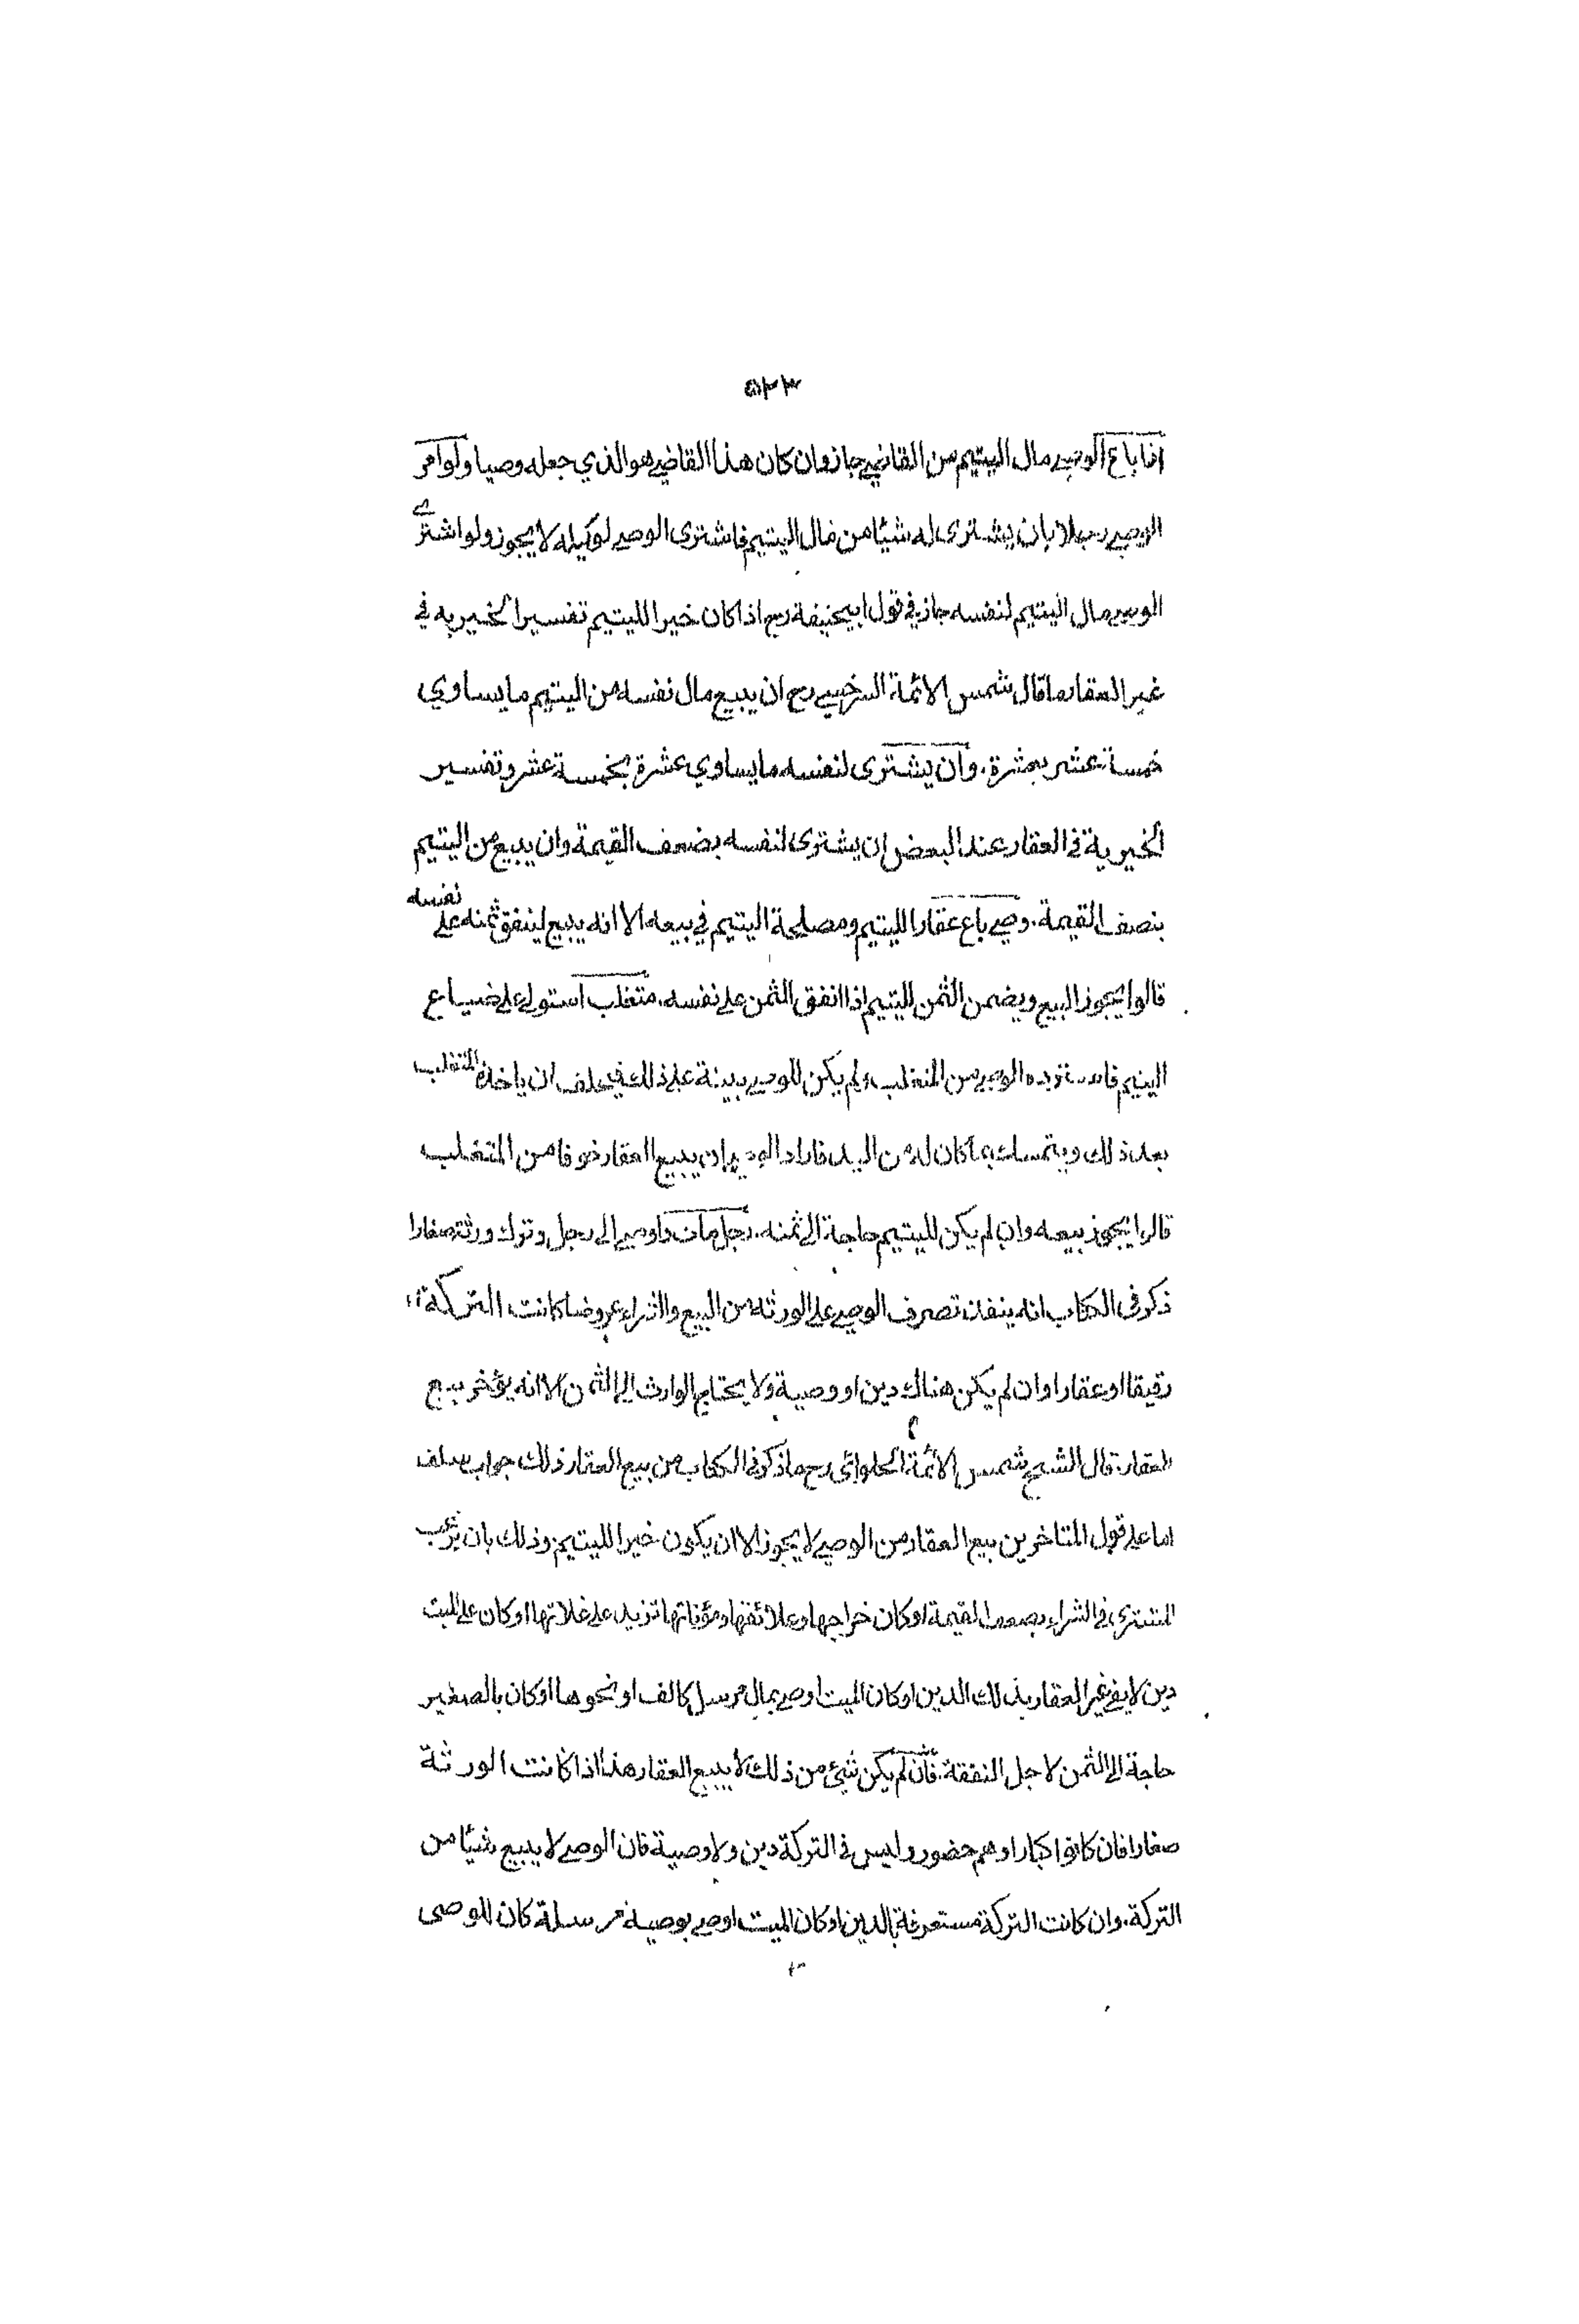 ٥٢٣
اذا باع الوصي مال اليتيم من القاضي جاز وان كان هذا القاضي هو الذي جعله وصيا ولو امر
الوصي رجلا بان يشترى له شيئا من مال اليتيم فاشترى الوصي لوكيله لا يجوز ولو اشترى
الوصي مال اليتيم لنفسه جاز في قول ابيحنيفة رح اذا كان خيرا لليتيم تفسير الخيرية في
غير العقار ما قال شمس الائمة السرخسي رح ان يبيع مال نفسه من اليتيم ما يساوي
خمسة عشر بعشرة. وان يشترى لنفسه ما يساوي عشرة بخمسة عشر وتفسير
الخيرية في العقار عند البعض ان يشترى لنفسه بضعف القيمة وان يبيع من اليتيم
بنصف القيمة. وصي باع عقارا لليتيم ومصلحة اليتيم في بيعه الا انه يبيع لينفق ثمنه على نفسه
قالوا يجوز البيع ويضمن الثمن لليتيم اذا انفق الثمن على نفسه. متغلب استولى على ضياع
اليتيم فاسترده الوصي من المتغلب ولم يكن للوصي بينة على ذلك فيخاف ان ياخذه المتغلب
بعد ذلك ويتمسك بما كان له من اليد فاراد الوصي ان يبيع العقار خوفا من المتغلب
قالوا يجوز بيعه وان لم يكن لليتيم حاجة الى ثمنه. رجل مات واوصى الى رجل وترك ورثة صغارا
ذكر في الكتاب انه ينفذ تصرف الوصي على الورثة من البيع والشراء عروضا كانت التركة
رقيقا او عقارا وان لم يكن هناك دين او وصية ولا يحتاج الوارث الى الثمن الا انه يؤخر بيع
العقار. قال الشيخ شمس الائمة الحلوائي رح ما ذكر في الكتاب من بيع العقار ذلك جواب سلف
اما على قول المتاخرين بيع العقار من الوصي لا يجوز الا ان يكون خيرا لليتيم وذلك بان يرغب
المشترى في الشراء بضعف القيمة او كان خراجها وعلائفها ومؤناتها تزيد على غلاتها او كان على الميت
دين لا يفي غير العقار بذلك الدين او كان الميت اوصى بمال مرسل كالف او نحوها او كان بالصغير
حاجة الى الثمن لاجل النفقة. فان لم يكن شئ من ذلك لا يبيع العقار هذا اذا كانت الورثة
صغارا فان كانوا كبارا وهم حضور وليس في التركة دين ولا وصية فان الوصي لا يبيع شيئا من
التركة. وان كانت التركة مستغرقة بالدين او كان الميت اوصى بوصية مرسلة كان للوصى